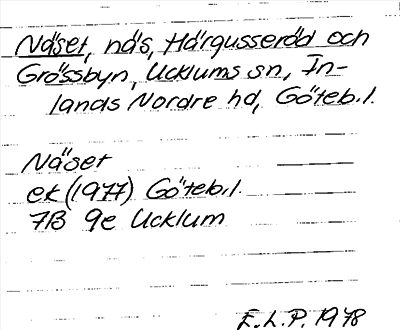 Näset, näs, Härgusseröd och
Grössbyn, Ucklums sn, In-
lands Nordre hd, Göteb.l.
Näset
ek (1977) Göteb.l.
7B 9e Ucklum
E.L.P. 1978